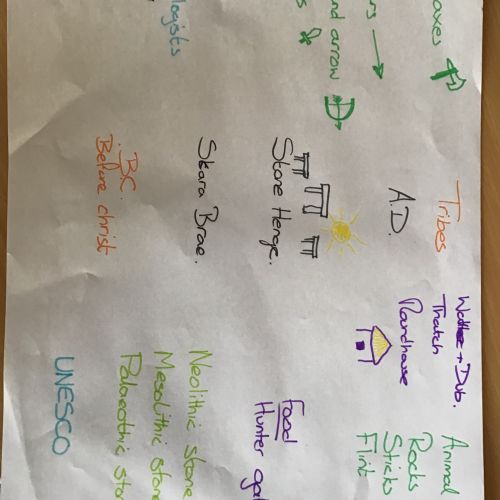 axes
arrow
Tribes
A.D.
Stone Henge.
Skara Brae.
B.C.
Before christ
Wattle + Dub.
Thatch
Roundhouse
Animal
Rocks
Sticks
Flint
Food
Hunter gat
Neolithic stone
Mesolithic stone
Palaeothic ston
UNESCO